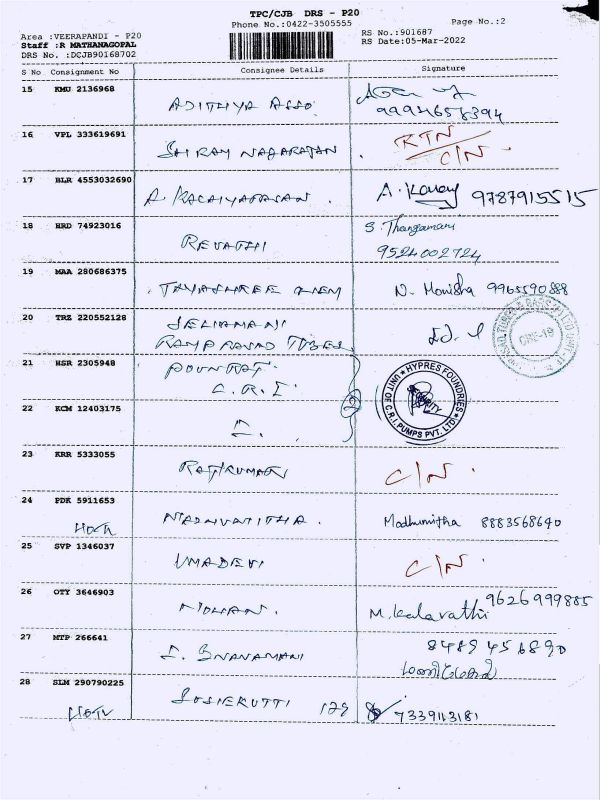 TPC/CJB DRS - P20
Phone No.:0422-3505555
Page No.:2
Area :VEERAPANDI - P20
RS No.:901687
Staff :R MATHANAGOPAL
RS Date:05-Mar-2022
DRS No. :DCJB90168702
S No Consignment No Consignee Details Signature
15 KMU 2136968 ADITHYA ASSO
9994657394
16 VPL 333619691 NAGARAJAN RTN
C/N
17 BLR 4553032690 A. 9787915515
18 HRD 74923016 REVATHI S. Thangamani
9524002724
19 MAA 280686375 N. Monisha 9965590888
20 TRZ 220552128 SELVAMANI
RAMPRASAD TUBES
21 HSR 2305948 POUNRAJ
C.R.I
HYPRES FOUNDRIES
UNIT OF C.R.I. PUMPS PVT. LTD.
SECURITY
22 KCM 12403175 2
23 KRR 5333055 RAJKUMAR C/N
24 PDK 5911653 Madhumitha 8883568640
25 SVP 1346037 UMADEVI C/N
26 OTY 3646903 MOHAN. M. Kalavathi 9626999885
27 MTP 266641 GNANAMANI 8489456890
28 SLM 290790225 SOSIEKUTTI 129 7339113181